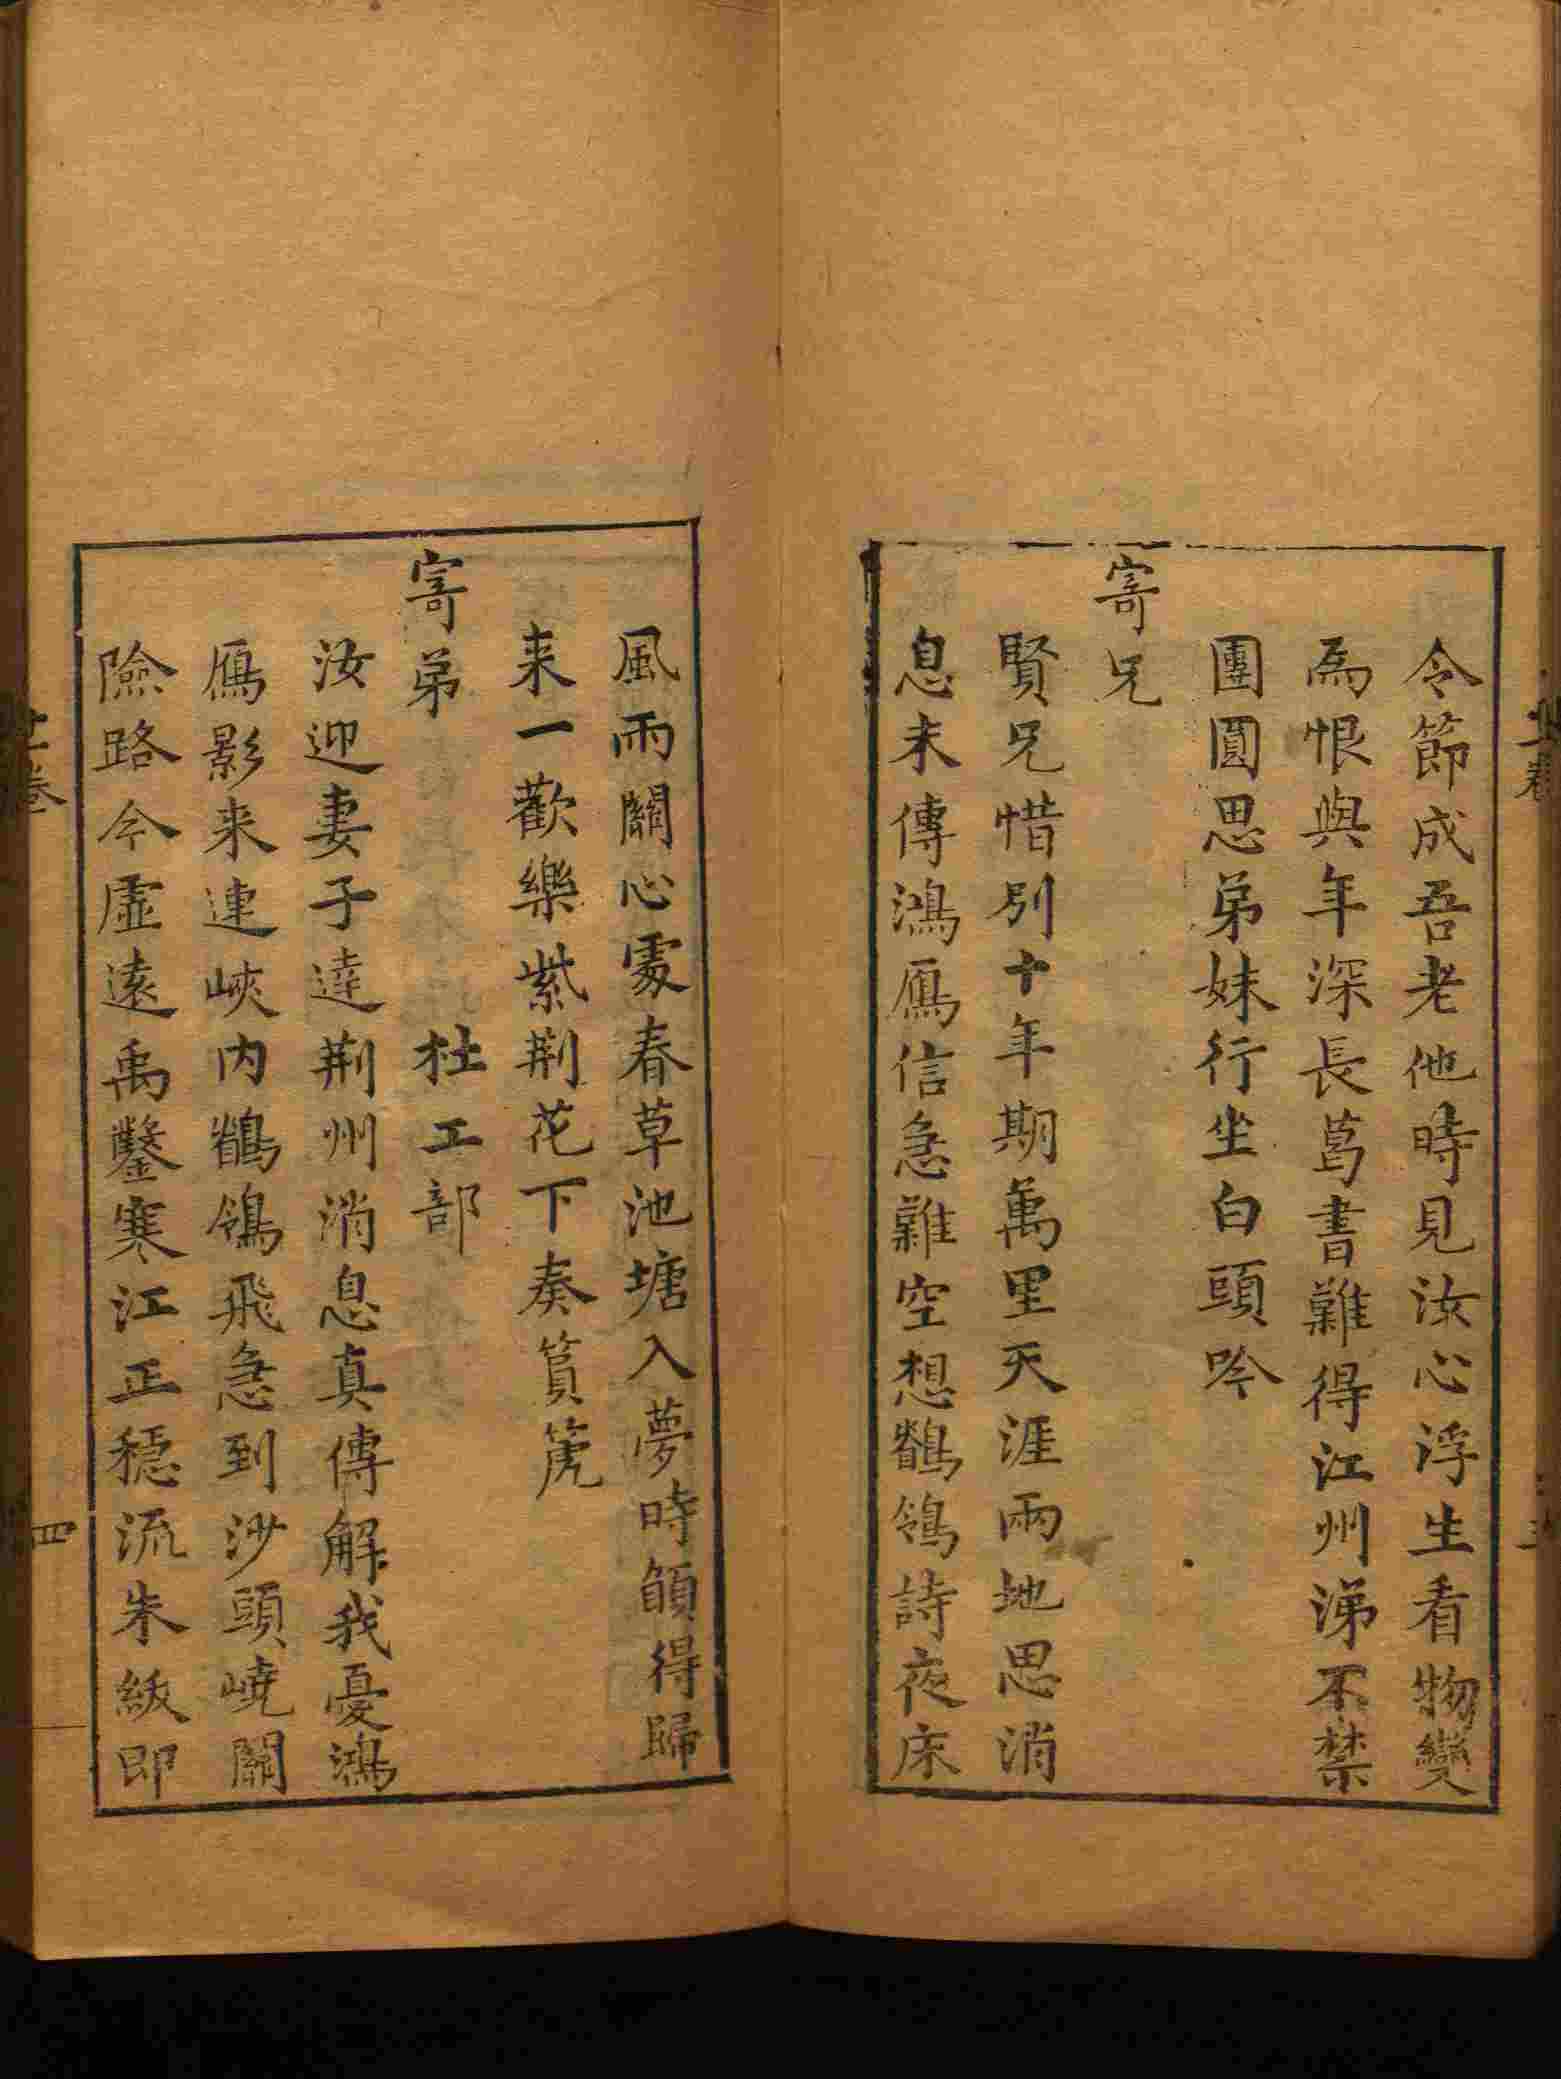 令節成吾老他時見汝心浮生看物變
為恨與年深長葛書難得江州涕不禁
團圓思弟妹行坐白頭吟
寄兄
賢兄惜別十年期萬里天涯兩地思消
息未傳鴻鴈信急難空想鶺鴒詩夜床
風雨關心處春草池塘入夢時願得歸
来一歡樂紫荆花下奏篔篪
寄弟 杜工部
汝迎妻子達荆州消息真傳解我憂鴻
鴈影来連峽內鶺鴒飛急到沙頭嶢關
險路今虛遠禹鑿寒江正穩流朱紱即
四